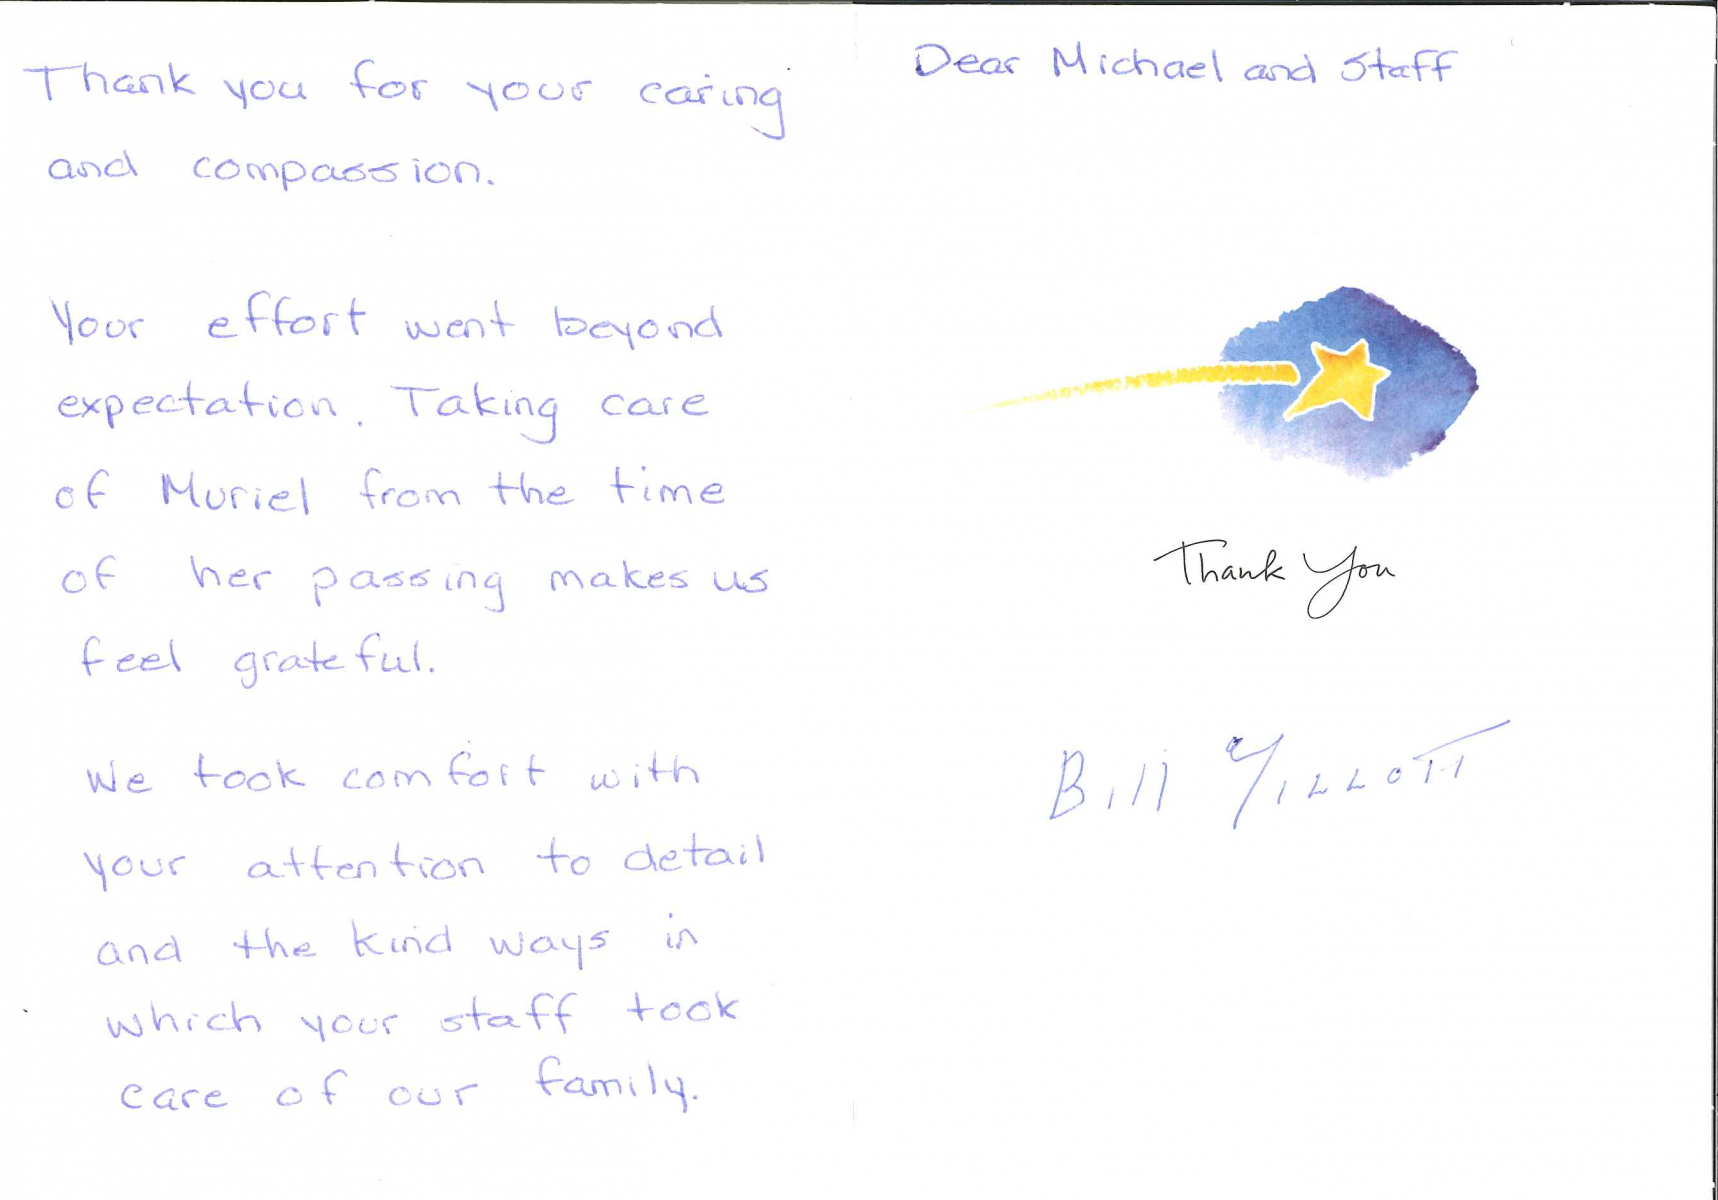 Thank you for your caring
and compassion.
Your effort went beyond
expectation. Taking care
of Muriel from the time
of her passing makes us
feel grateful.
We took comfort with
your attention to detail
and the kind ways in
which your staff took
care of our family.
Dear Michael and Staff
Thank You
Bill